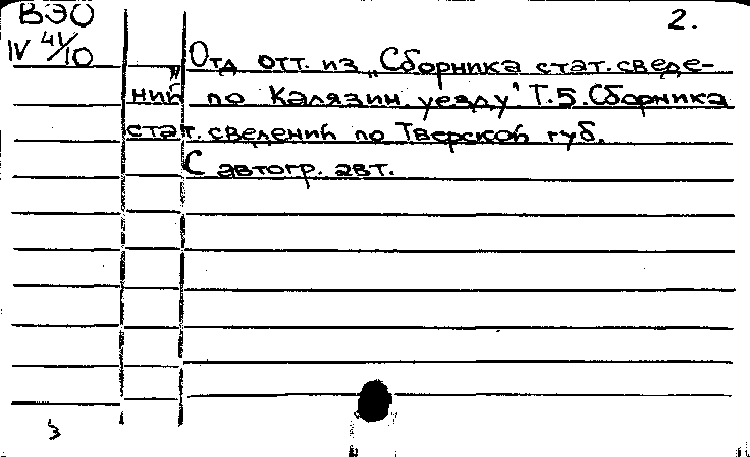 ВЭО
2.
IV 41/10
Отд отт. из „Сборника стат. сведе-
ний" по Калязин. уезду". Т.5. Сборника
стат. сведений по Тверской губ.
С автогр. авт.
3